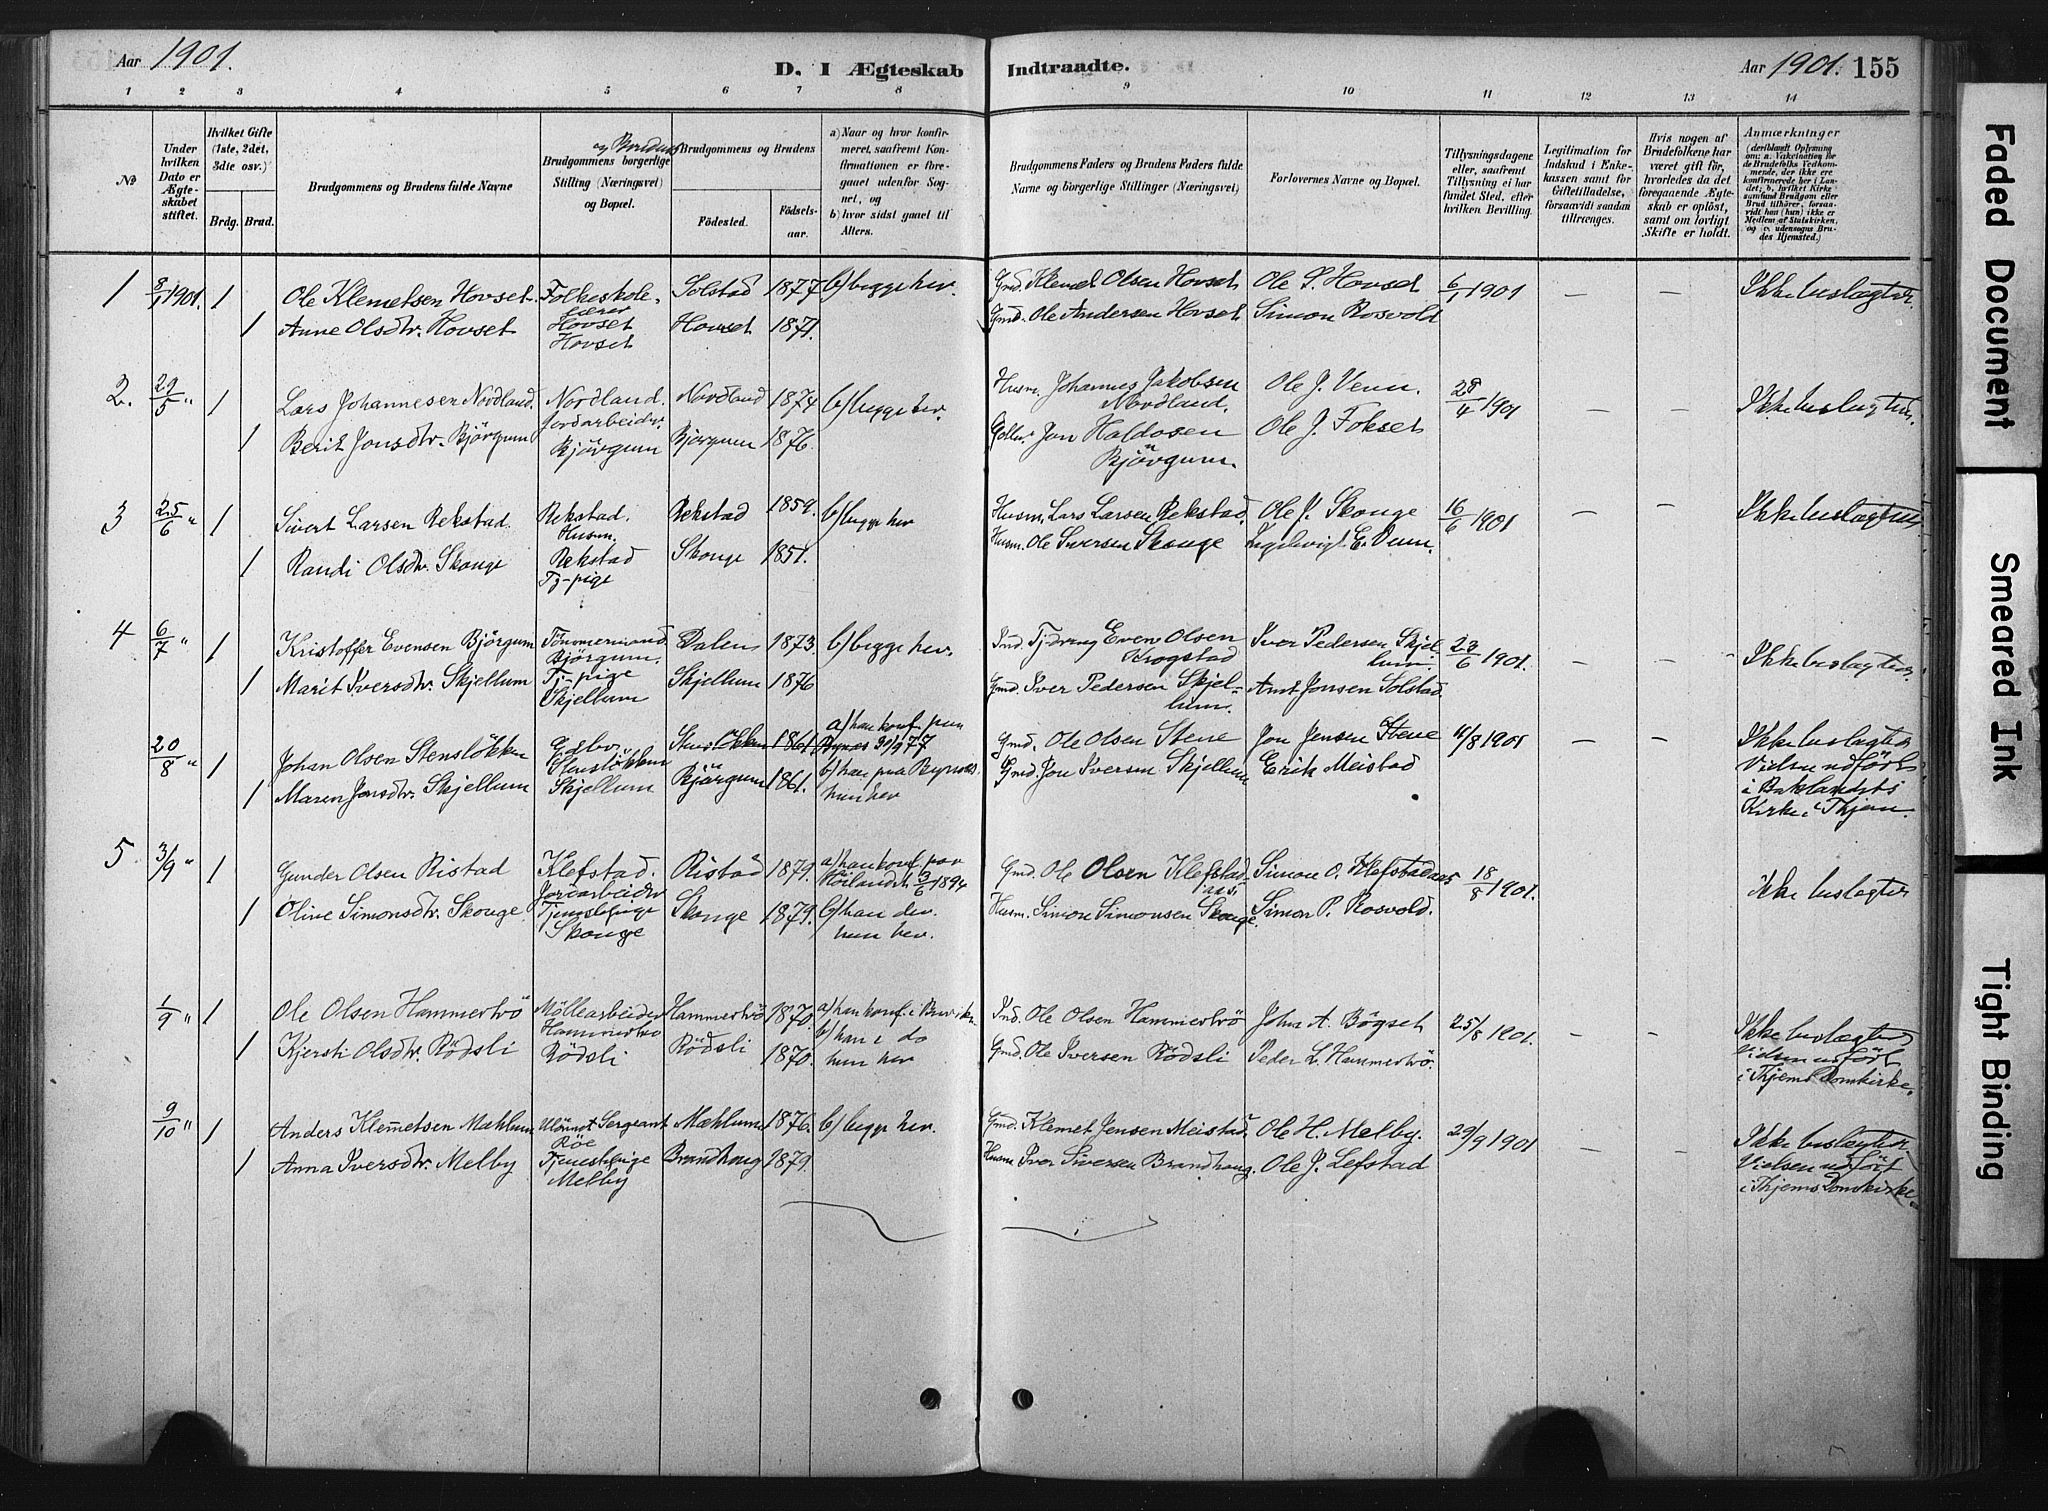 Aar 1901.
D. I Ægteskab Indtraadte.
Aar 1901. 155
1 2 3 4 5 6 7 8 9 10 11 12 13 14
No
Under hvilken Dato er Ægteskabet stiftet.
Hvilket Gifte (1ste, 2det, 3die osv.)
Brdg. Brud.
Brudgommens og Brudens fulde Navne
og Brudens
Brudgommens borgerlige Stilling (Næringsvei) og Bopæl.
Brudgommens og Brudens
Fødested.
Fødselsaar.
a) Naar og hvor konfirmeret, saafremt Konfirmationen er foregaaet udenfor Sognet, og
b) hvor sidst gaaet til Alters.
Brudgommens Faders og Brudens Faders fulde Navne og borgerlige Stillinger (Næringsvei)
Forlovernes Navne og Bopæl.
Tillysningsdagene eller, saafremt Tillysning ei har fundet Sted, efter hvilken Bevilling.
Legitimation for Indskud i Enkekassen samt for Giftetilladelse, forsaavidt saadan tiltrænges.
Hvis nogen af Brudefolkene har været gift før, hvorledes da det foregaaende Ægteskab er opløst, samt om lovligt Skifte er holdt.
Anmærkninger (deriblandt Oplysning om: a. Vakcination for de Brudefolks Vedkommende, der ikke ere konfirmerede her i Landet; b. hvilket Kirkesamfund Brudgom eller Brud tilhører, forsaavidt han (hun) ikke er Medlem af Statskirken, og c. udensogns Brudes Hjemsted.)
1 8/1 1901. 1 Ole Klemetsen Hovset. Folkeskolelærer Hovset Solstad 1877 b) begge her. Gmd. Klemet Olsen Hovset Ole P. Hovset 6/1 1901 — — Ikke beslægtede.
1 Anne Olsdtr. Hovset Hovset Hovset 1871. Gmd. Ole Andersen Hovset Simon Rosvold
2. 29/5 " 1 Lars Johannesen Nordland. Nordland. Jordarbeider. Nordland 1874 b) begge her. Husm. Johannes Jakobsen Nordland. Ole J. Venn. 28/4 1901 — — Ikke beslægtede.
1 Berit Jonsdtr. Björgum Björgum Björgum 1876. Jon Haldosen Björgum. Ole J. Fokset
3 25/6 " 1 Sivert Larsen Rekstad. Rekstad. Husm. Rekstad 1859. b) begge her Husm. Lars Larsen Rekstad. Ole J. Skonge 16/6 1901 — — Ikke beslægtede
1 Randi Olsdtr. Skonge Rekstad Tj-pige Skonge 1851. Husm. Ole Iversen Skonge
4 6/7 " 1 Kristoffer Evensen Björgum Tömmermand Björgum. Dalen 1873. b) begge her. Ind. Even Olsen Krogstad Iver Pedersen Skjellum. 23/6 1901. — — Ikke beslægtede.
1 Marit Iversdtr. Skjellum Tj-pige Skjellum Skjellum 1876 Gmd. Iver Pedersen Skjellum. Arnt Jonsen Solstad
20/8 " 1 Johan Olsen Stenslökken Stenslökken 1861 a) han konf. paa Bynes 30/9 77 Gmd. Ole Olsen Stene Jon Jensen Stene 11/8 1901 — — Ikke beslægtede Vielsen udfört i Baklandets Kirke i Thjem.
1 Maren Jonsdtr. Skjellum Skjellum Björgum 1861. b) han paa Bynes. hun her Gmd. Jon Iversen Skjellum Erik Meistad
5 3/9 " 1 Gunder Olsen Ristad Klefstad. Jordarbeider Ristad 1879. a) han konf. paa Höilandet 3/6 1894 Gmd. Ole Olsen Klefstadaas Simon O. Klefstadaas 18/8 1901. ikke beslægtede
1 Oline Simonsdtr. Skonge. Tjenestepige Skonge Skonge 1879. b) han der. hun her. Husm. Simon Simonsen Skonge. Simon P. Rosvold.
1/9 " 1 Ole Olsen Hammertrö Möllearbeider Hammertrö Hammertrö 1870. a) han konf. i Buviken b) han i do Ind. Ole Olsen Hammertrö John A. Bögset 25/8 1901. — — Ikke beslægtede Vielsen udfört i Thjems Domkirke.
1 Kjersti Olsdtr. Rödsli Rödsli Rödsli 1870. hun her Gmd. Ole Iversen Rödsli Peder L. Hammertrö.
9/10 " 1 Anders Klemetsen Mæhlum Sergeant Röe Mæhlum 1876. b) begge her. Gmd. Klemet Jensen Meistad. Ole H. Melby. 29/9 1901 — — Ikke beslægtede. Vielsen udfört i Thjems Domkirke.
1 Anna Iversdtr. Melby Tjenestepige Melby Brandhaug 1879. Husm Iver Siversen Brandhaug. Ole J. Lefstad
Faded Document
Smeared Ink
Tight Binding